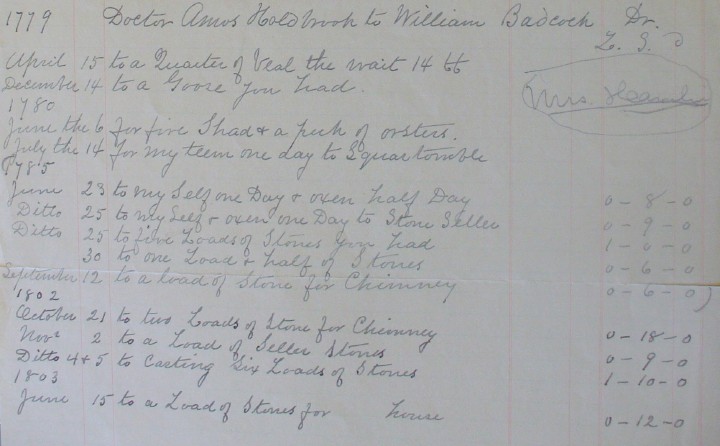 1779 Doctor Amos Holdbrook to William Badcock Dr.
L. S. D
April 15 to a Quarter of Veal the wait 14 lb
December 14 to a Goose you had.
Mrs.
1780
June the 6 for five Shad & a peck of orsters.
July the 14 for my teem one day to Squartomble
1785
June 23 to my Self one Day & oxen half Day 0-8-0
Ditto 25 to my Self & oxen one Day to Stone Seller 0-9-0
Ditto 25 to five Loads of Stones you had 1-0-0
30 to one Load & half of Stones 0-6-0
September 12 to a load of Stone for Chimney 0-6-0
1802
October 21 to two Loads of Stone for Chimney 0-18-0
Novr 2 to a Load of Seller Stones 0-9-0
Ditto 4 & 5 to Casting Six Loads of Stones 1-10-0
1803
June 15 to a Load of Stones for house 0-12-0